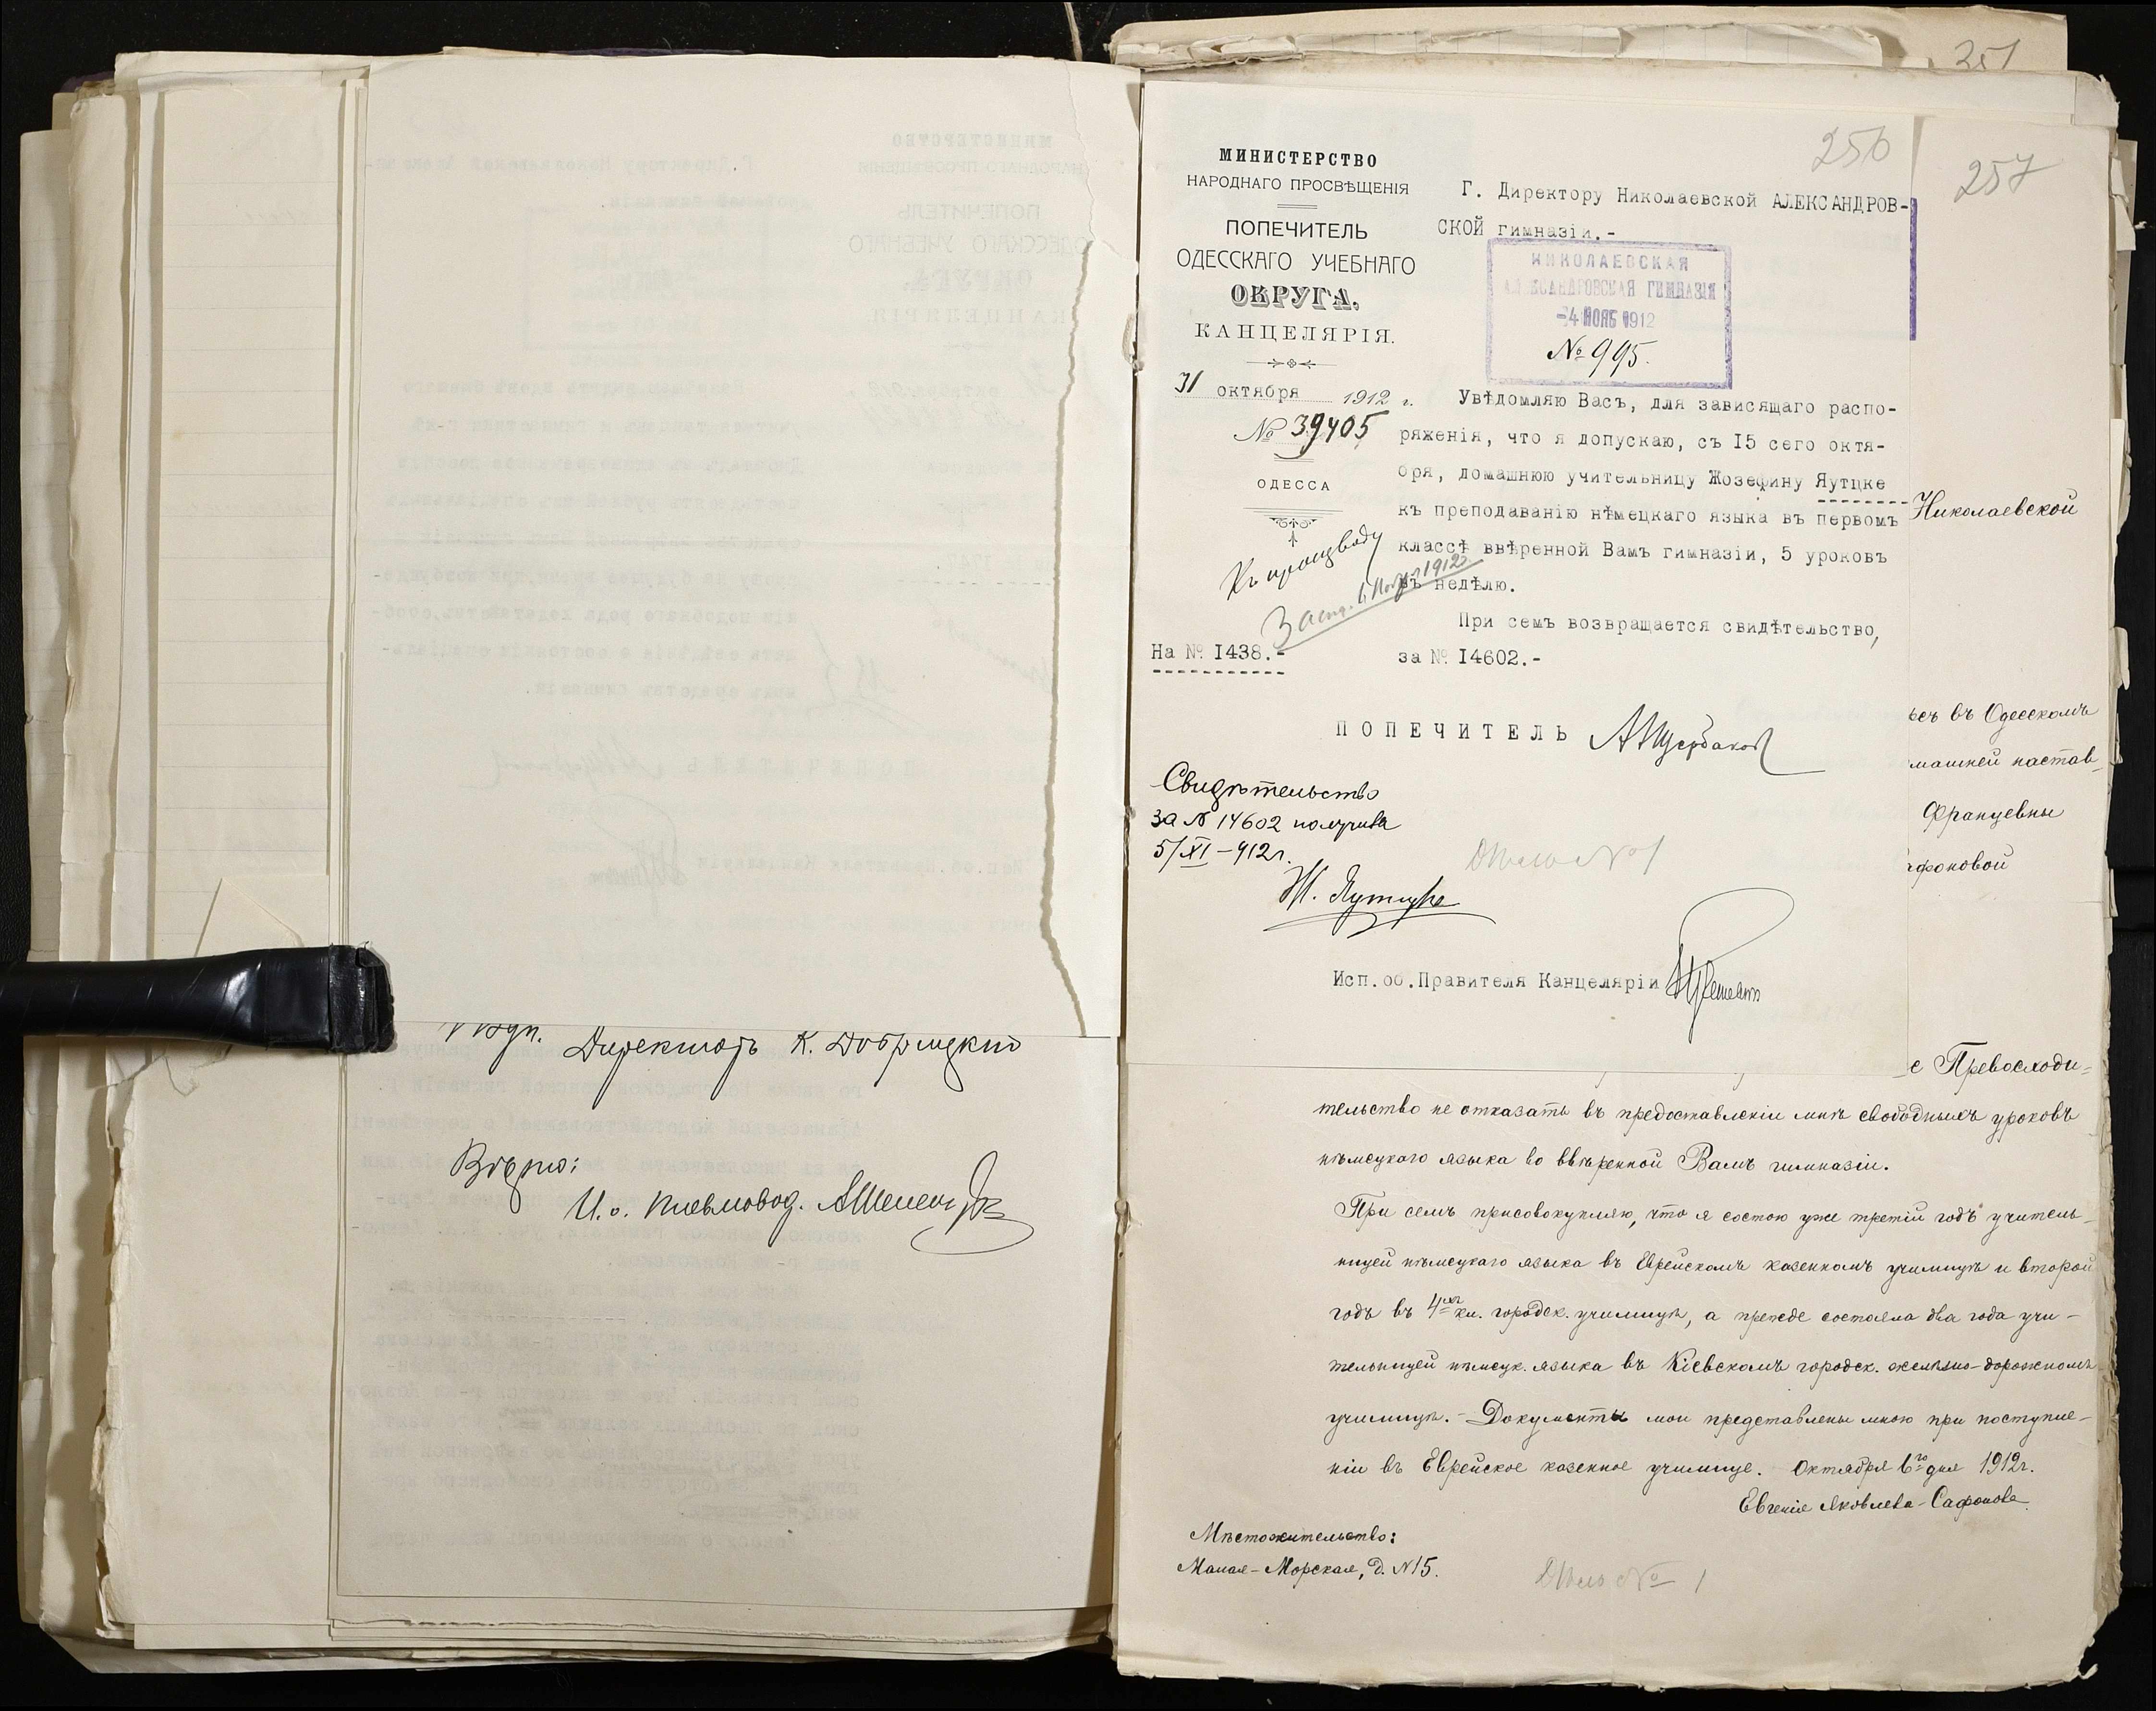 Директоръ К. Добрицкій
Вѣрно:
И. о. письмовод. АШелен
251
256
257
МИНИСТЕРСТВО
НАРОДНАГО ПРОСВѢЩЕНІЯ
ПОПЕЧИТЕЛЬ
ОДЕССКАГО УЧЕБНАГО
ОКРУГА.
КАНЦЕЛЯРІЯ.
31 октября 1912 г.
№ 39405
ОДЕССА
Къ производу
Засл. 6 Нояб 1912
На № I438.-
Г. Директору Николаевской АЛЕКСАНДРОВ-
СКОЙ гимназіи.-
НИКОЛАЕВСКАЯ
АЛЕКСАНДРОВСКАЯ ГИМНАЗІЯ
-4 НОЯБ 1912
№ 995.
Увѣдомляю Васъ, для зависящаго распо-
ряженія, что я допускаю, съ I5 сего октя-
бря, домашнюю учительницу Жозефину Яутцке
къ преподаванію нѣмецкаго языка въ первомъ
классѣ ввѣренной Вамъ гимназіи, 5 уроковъ
въ недѣлю.
При семъ возвращается свидѣтельство,
за № I4602.-
ПОПЕЧИТЕЛЬ АЩербаковъ
Свидѣтельство
за № 14602 получила
5/XI-912г.
Ж. Яутцке
Дѣло № 1
Исп.об.Правителя Канцеляріи
Николаевской
ѣсъ въ Одесскомъ
машней настав-
Францевны
афоновой
е Превосходи-
тельство не отказать въ предоставленіи мнѣ свободныхъ уроковъ
нѣмецкаго языка во ввѣренной Вамъ гимназіи.
При семъ присовокупляю, что я состою уже третій годъ учитель-
ницей нѣмецкаго языка въ Еврейскомъ казенномъ училищѣ и второй
годъ въ 4хъ кл. городск. училищѣ, а прежде состояла два года учи-
тельницей нѣмецк. языка въ Кіевскомъ городск. желѣзно-дорожномъ
училищѣ. - Документы мои представлены мною при поступле-
ніи въ Еврейское казенное училище. Октября 6го дня 1912г.
Евгенія Яковлева-Сафонова.
Мѣстожительство:
Малая-Морская, д. №15.
Дѣло № 1